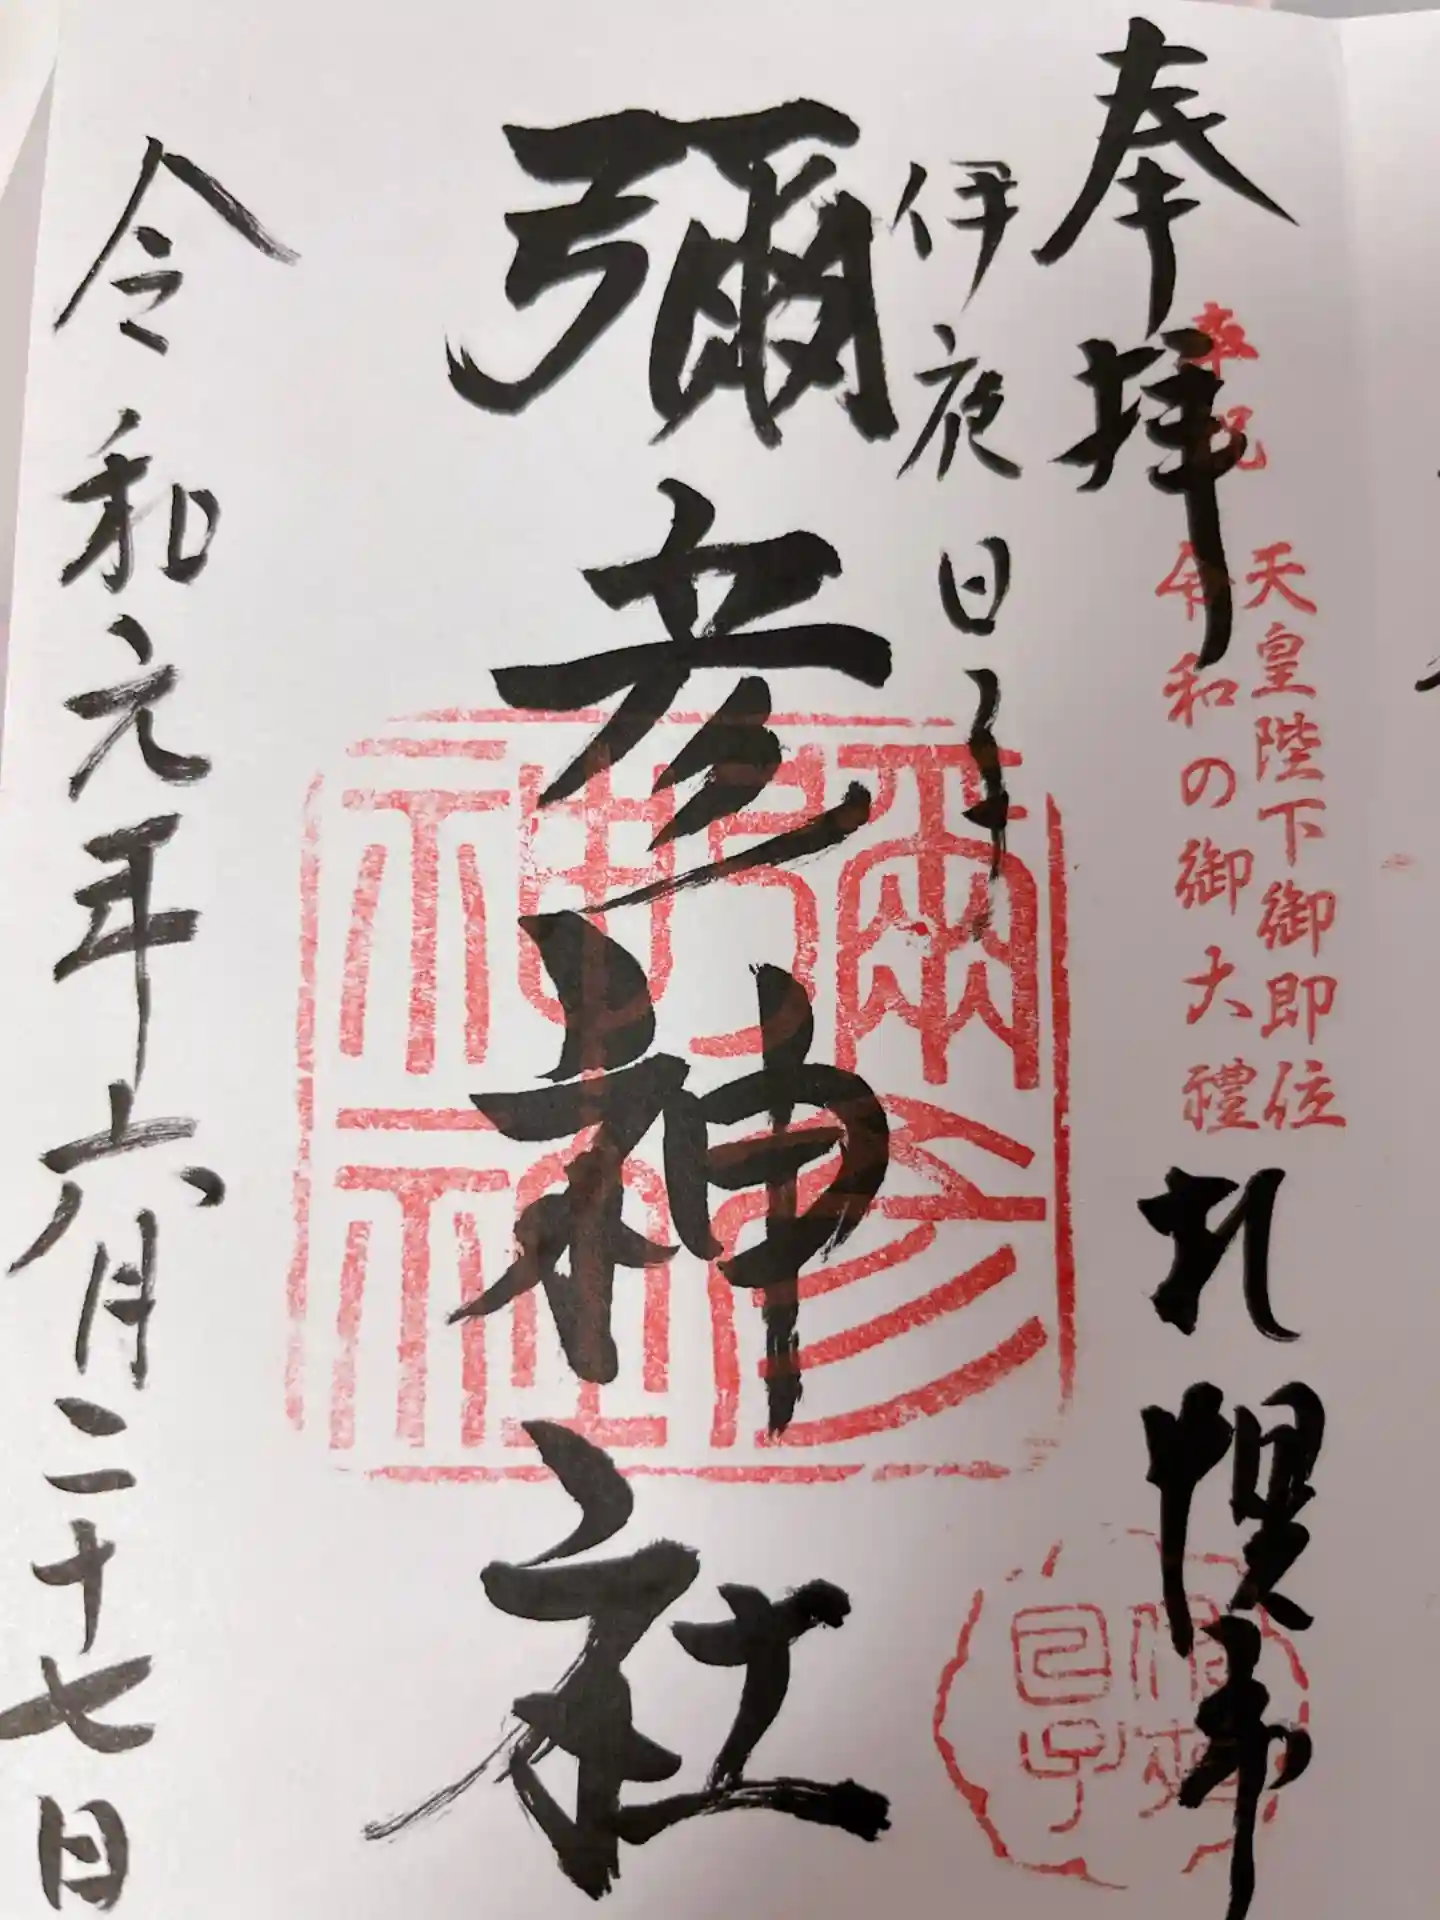 奉拝 札幌市
奉祝
天皇陛下御即位
令和の御大禮
伊夜日子
彌彦神社
彌彦神社
伊夜日子
令和元年六月二十七日